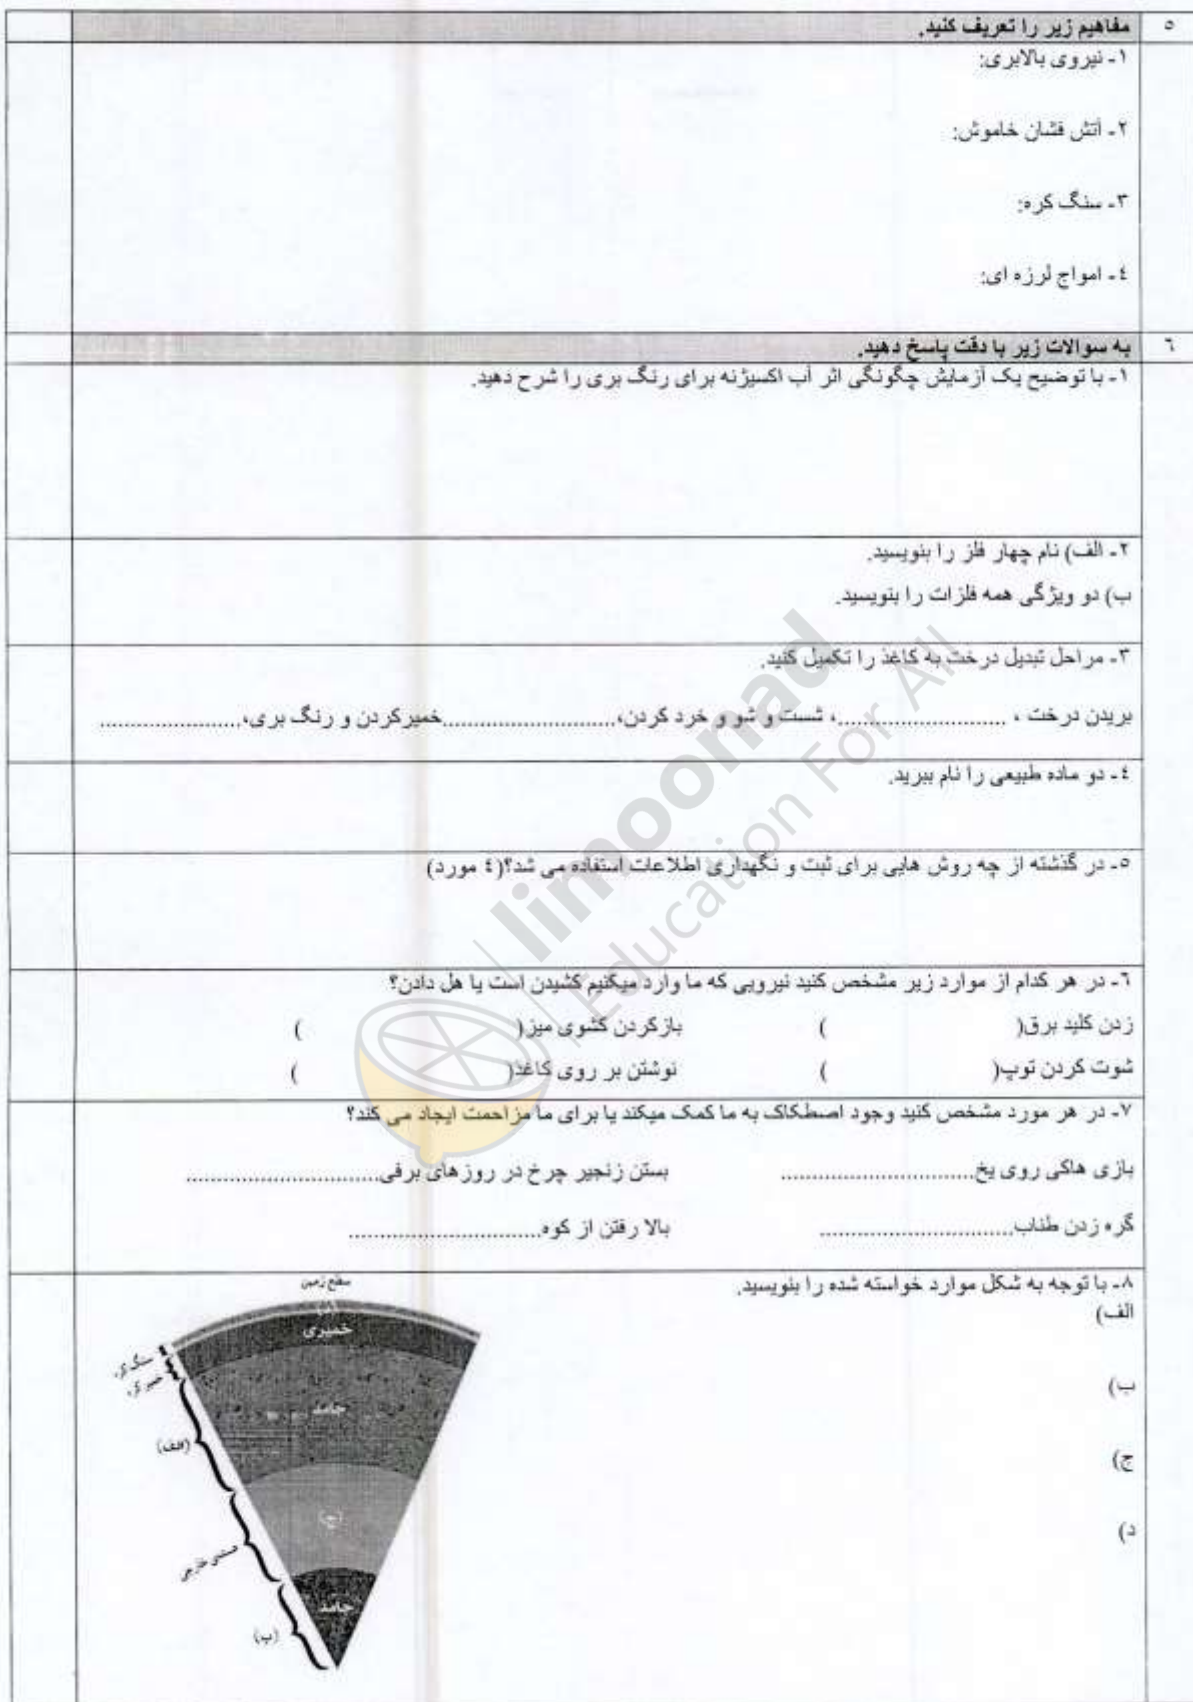 ۵ مفاهیم زیر را تعریف کنید.
۱- نیروی بالابری:
۲- آتش فشان خاموش:
۳- سنگ کره:
۴- امواج لرزه ای:
۶ به سوالات زیر با دقت پاسخ دهید.
۱- با توضیح یک آزمایش چگونگی اثر آب اکسیژنه برای رنگ بری را شرح دهید.
۲- الف) نام چهار فلز را بنویسید.
ب) دو ویژگی همه فلزات را بنویسید.
۳- مراحل تبدیل درخت به کاغذ را تکمیل کنید.
بریدن درخت ، ............................، شست و شو و خرد کردن،............................خمیرکردن و رنگ بری،.......................
۴- دو ماده طبیعی را نام ببرید.
۵- در گذشته از چه روش هایی برای ثبت و نگهداری اطلاعات استفاده می شد؟(۴ مورد)
۶- در هر کدام از موارد زیر مشخص کنید نیرویی که ما وارد میکنیم کشیدن است یا هل دادن؟
زدن کلید برق( ) بازکردن کشوی میز( )
شوت کردن توپ( ) نوشتن بر روی کاغذ( )
۷- در هر مورد مشخص کنید وجود اصطکاک به ما کمک میکند یا برای ما مزاحمت ایجاد می کند؟
بازی هاکی روی یخ................................ بستن زنجیر چرخ در روزهای برفی................................
گره زدن طناب................................ بالا رفتن از کوه................................
۸- با توجه به شکل موارد خواسته شده را بنویسید.
الف)
ب)
ج)
د)
سطح زمین
خمیری
سنگ کره
خمیر کره
جامد
(الف)
(ج)
هسته‌ی خارجی
جامد
(ب)
limoonad
Education For All